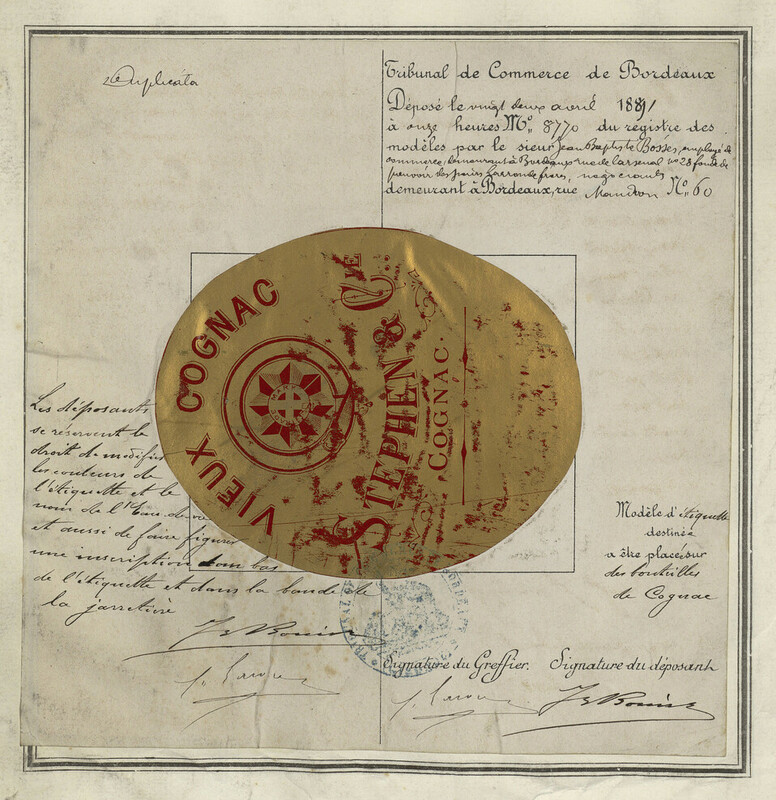 Duplicata
Tribunal de Commerce de Bordeaux
Déposé le vingt deux avril 1891
à onze heures No. 8770 du registre des
modèles par le sieur Jean Baptiste employé de
commerce, demeurant à Bordeaux rue de l'arsenal no 28 fondé de
pouvoir des frères, négociants
demeurant à Bordeaux, rue Mandron No. 60
VIEUX COGNAC
STEPHEN & CIE
COGNAC.
Les déposants
se réservent le
droit de modifier
les couleurs de
l'étiquette et le
nom de l'Eau-de-vie
et aussi de faire figurer
une inscription bas
de l'étiquette et dans la bande de
la jarretière
Modèle d'étiquette
destinée
a être placé sur
des bouteilles
de Cognac
Signature du Greffier. Signature du déposant